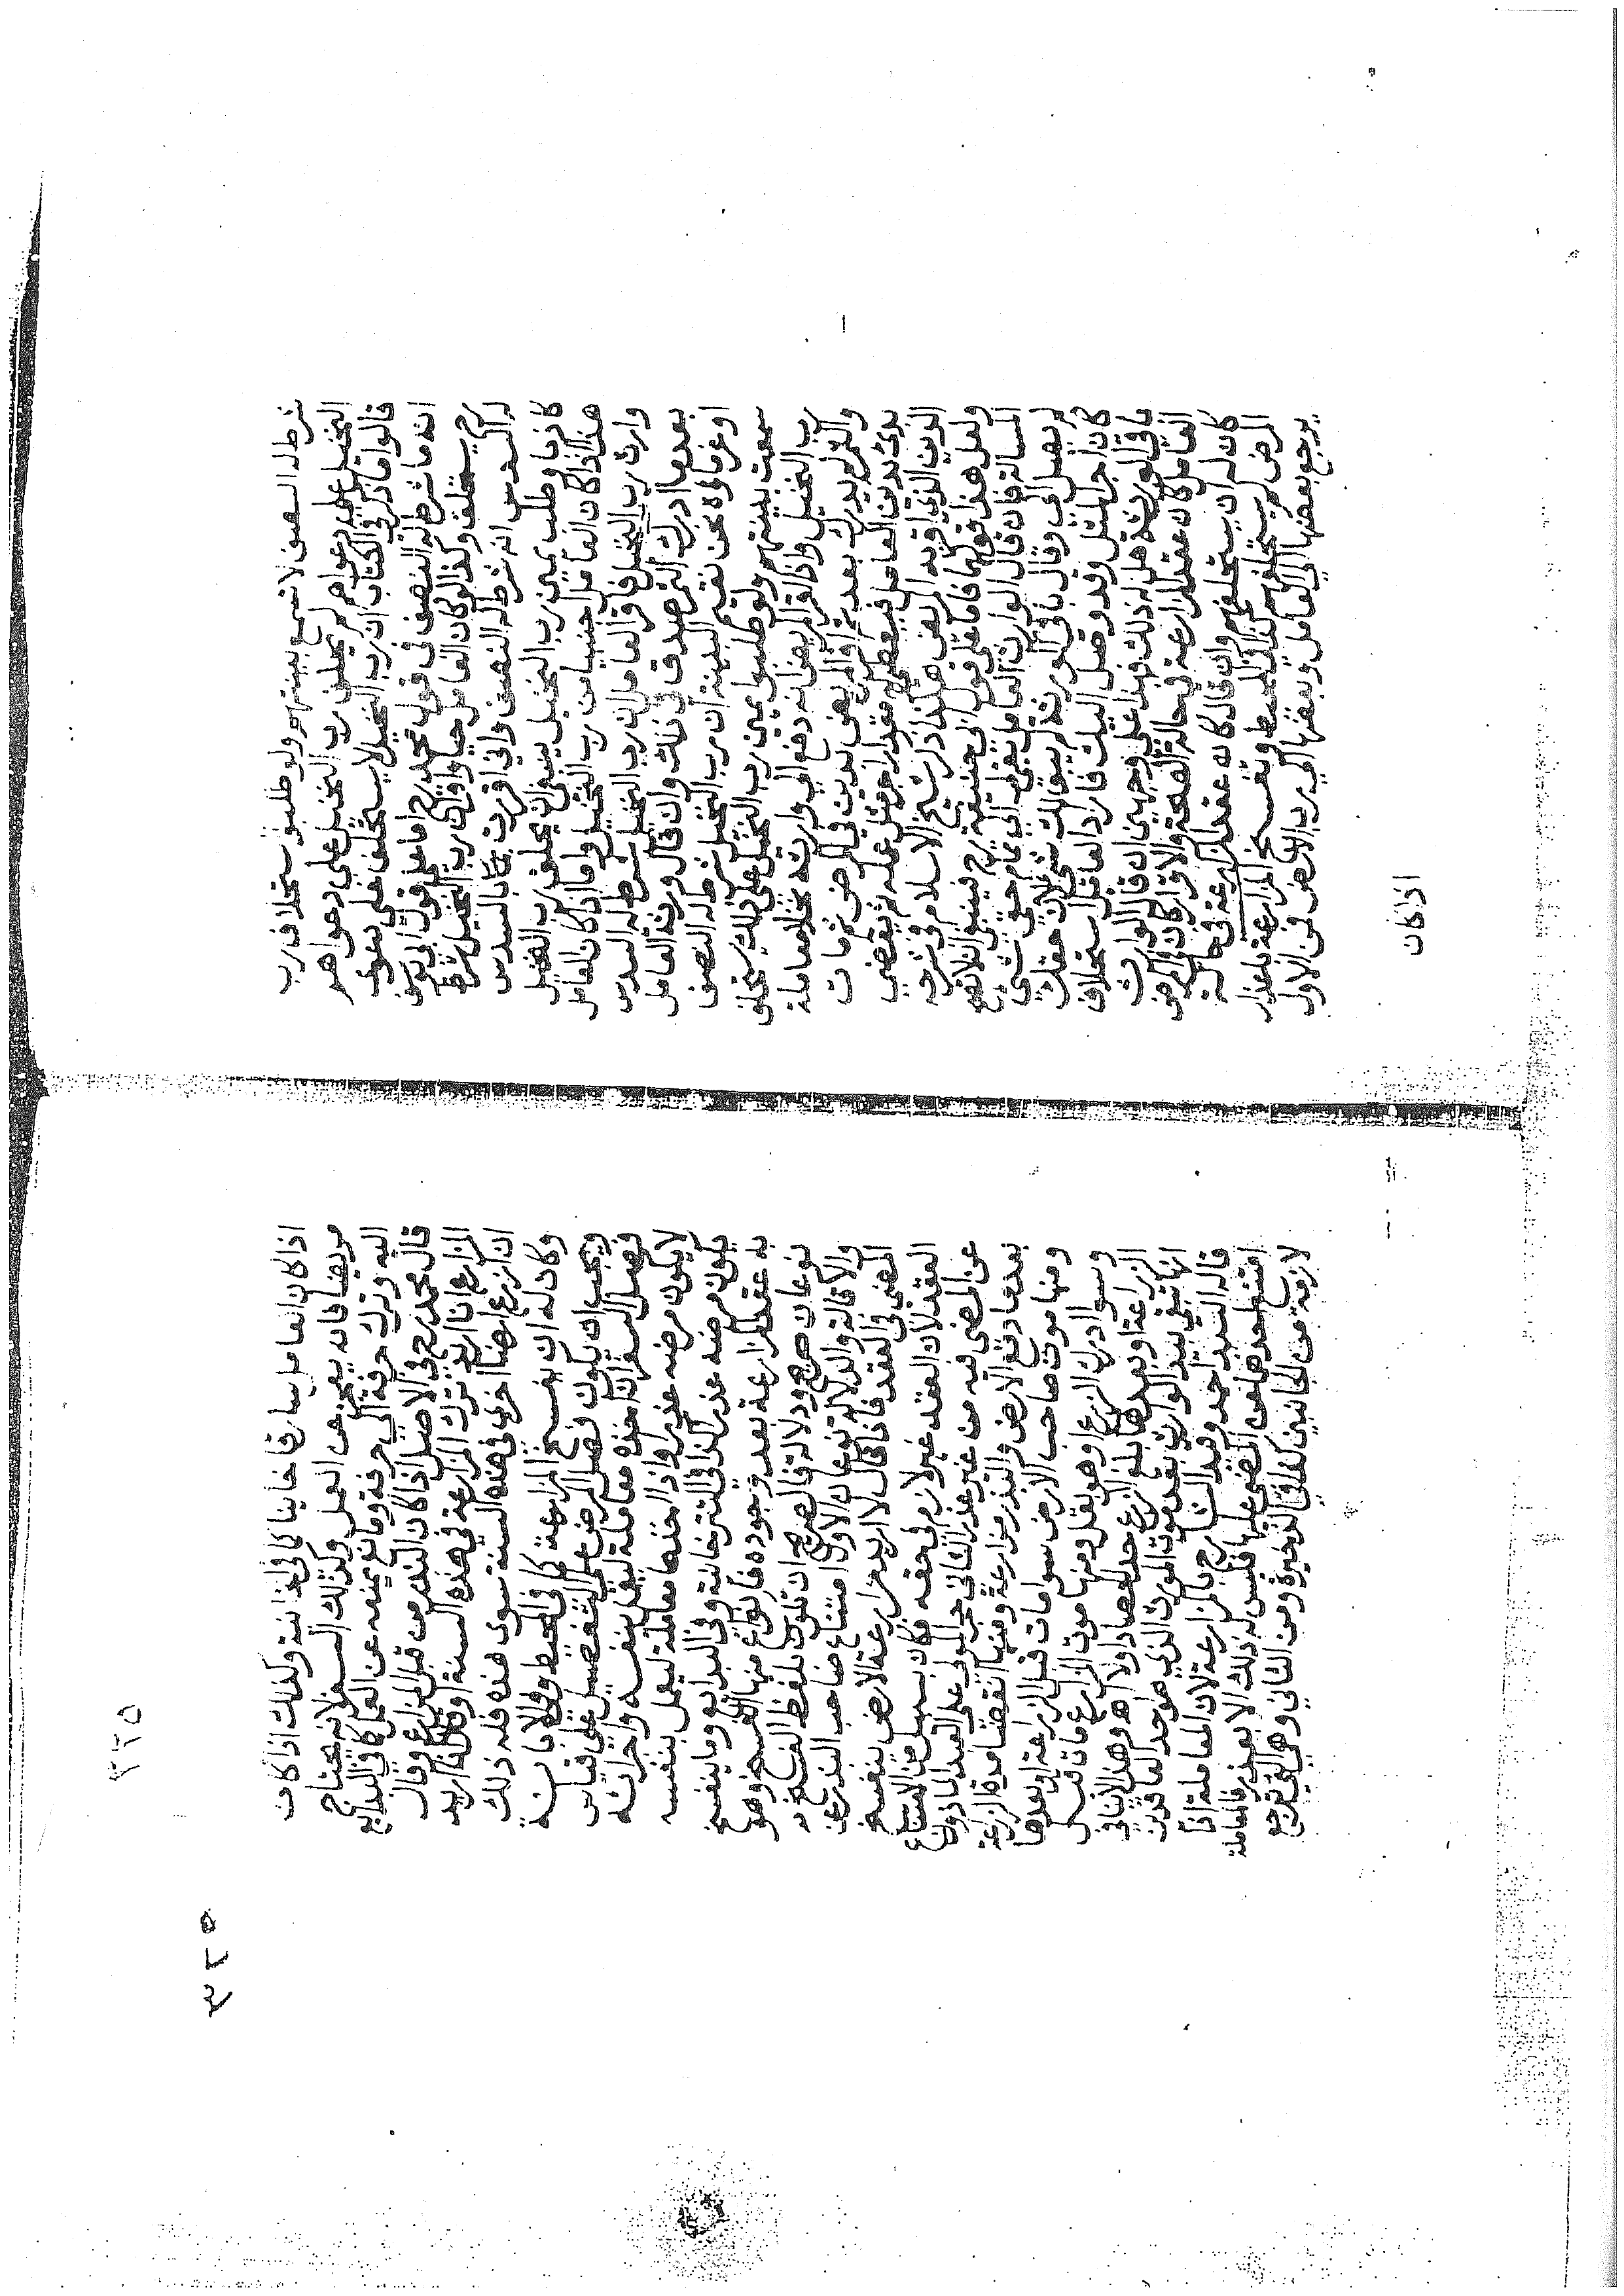 شرط له السدس لا تسمع بينتهم ولو طلبوا استحلاف رب
النخيل على دعواهم لم يحلف رب النخيل على دعواهم
قالوا ما ذكر في الكتاب ان رب النخيل لا يستحلف على دعوى
انه ما شرط له النصف في قول محمد رح اما على قول ابي يوسف
رح يستحلف وكذا لو كان العامل حيا واقر ان رب النخيل شرط
له السدس انه شرط له النصف واني اقررت بالسدس
كاذبا وطلب يمين رب النخيل ينبغي ان يحلف رب النخيل
هذا اذا كان العامل اجنبيا من رب النخيل واما اذا كان العامل
وارث رب النخيل فاقر العامل ان رب النخيل شرط له السدس
بعد ما ادرك الثمر صدق في ذلك وان قال ورثة العامل
او غرماؤه نحن نقيم البينة ان رب النخيل شرط له النصف
سمعت بينتهم ولو طلبوا يمين رب النخيل على ذلك يستحلف
رب النخيل واذا اقر المريض انه دفع الى وارثه نخلا معاملة
والثمر لم يدرك بعد ثم اقر المريض بدين في المرض ثم مات
بدئ بدين العامل فيعطى مقدار اجر مثل عمله ثم يقضى
الدين الذي اقر به المريض هكذا ذكر شيخ الاسلام في شرحه
ولعل هذا قولهما فاما على قول ابي حنيفة رح فينبغي ان لا تصح
المسألة فان قال الوارث العامل بقي لي تمام حقي شيء
لم يصل الي وقال باقي الورثة لم يبق لك شيء لان حقك
كان اجر المثل وقد وصل اليك فاراد العامل استحلاف
باقي الورثة هل له ذلك فهذا على وجهين ان قال الوارث
العامل كان عقد المزارعة في حالة الصحة والاقرار كان في المرض
كان له ان يستحلفهم وان قال كان عقد المزارعة في حالة
المرض لم يستحلفهم كذا في المحيط وتفسخ المزارعة باعذار
يرجع بعضها الى العامل وبعضها الى رب الارض فمن الاول
اذا كان
اذا كان العامل سارقا خائنا كما في الخانية وكذلك اذا كان
مريضا فانه يعجز عن العمل وكذلك السفر لانه يحتاج
اليه وترك حرفة الى حرفة ومانع يمنعه عن العمل كما في البدائع
قال محمد رح في الاصل اذا كان البذر من قبل المزارع وقال
المزارع انا اريد ترك المزارعة في هذه السنة او قال انا اريد
ان ازرع ارضا اخرى في هذه السنة سوى هذه فله ذلك
وكان له ان يفسخ المزارعة كما في المحيط وقالا باستة
ويجب ان يكون فصل المرض على التفصيل على قياس
فصل السفر ان اخذه معاملة ليعمل بنفسه واجرائه
لا يكون مرضه عذرا واذا اخذها معاملة ليعمل بنفسه
يكون مرضه عذرا كذا في التترخانية وفي البدائع وما ينفسخ
به عقد المزارعة بعد وجوده فانواع منها الفسخ وهو
نوعان صريح ودلالة فالصريح ان تكون بلفظ الفسخ
والاقالة والدلالة نوعان الاول امتناع صاحب البذر عن
المضي في العقد فاذا قال لا اريد مزارعة الارض ينفسخ
العقد لان العقد غير لازم في حقه فكان بسبيل من الامتناع
عن المضي فيه من غير عذر الثاني حجر المولى على العبد المأذون
بعد ما دفع الارض والبذر مزارعة ومنها انقضاء مدة المزارعة
ومنها موت صاحب الارض سواء مات قبل الزراعة او بعدها
وسواء ادرك الزرع او هو بقل ومنها موت المزارع مات قبل
الزراعة او بعدها بلغ الزرع حد الحصاد او لا اهـ وهذا لا ينافي
انها تبقى بيد الوارث بعد موت المورث الذي هو احد العاقدين
قاله السيد احمد وقيد الشارح بالمزارعة لان المعاملة اذا
امتنع احدهما عن المضي عليها فليس له ذلك الا بعذر فالمعاملة
لازمة من الجانبين كما في الذخيرة ومن الثاني وهي التي ترجع
٣٢٥
٣٢٥